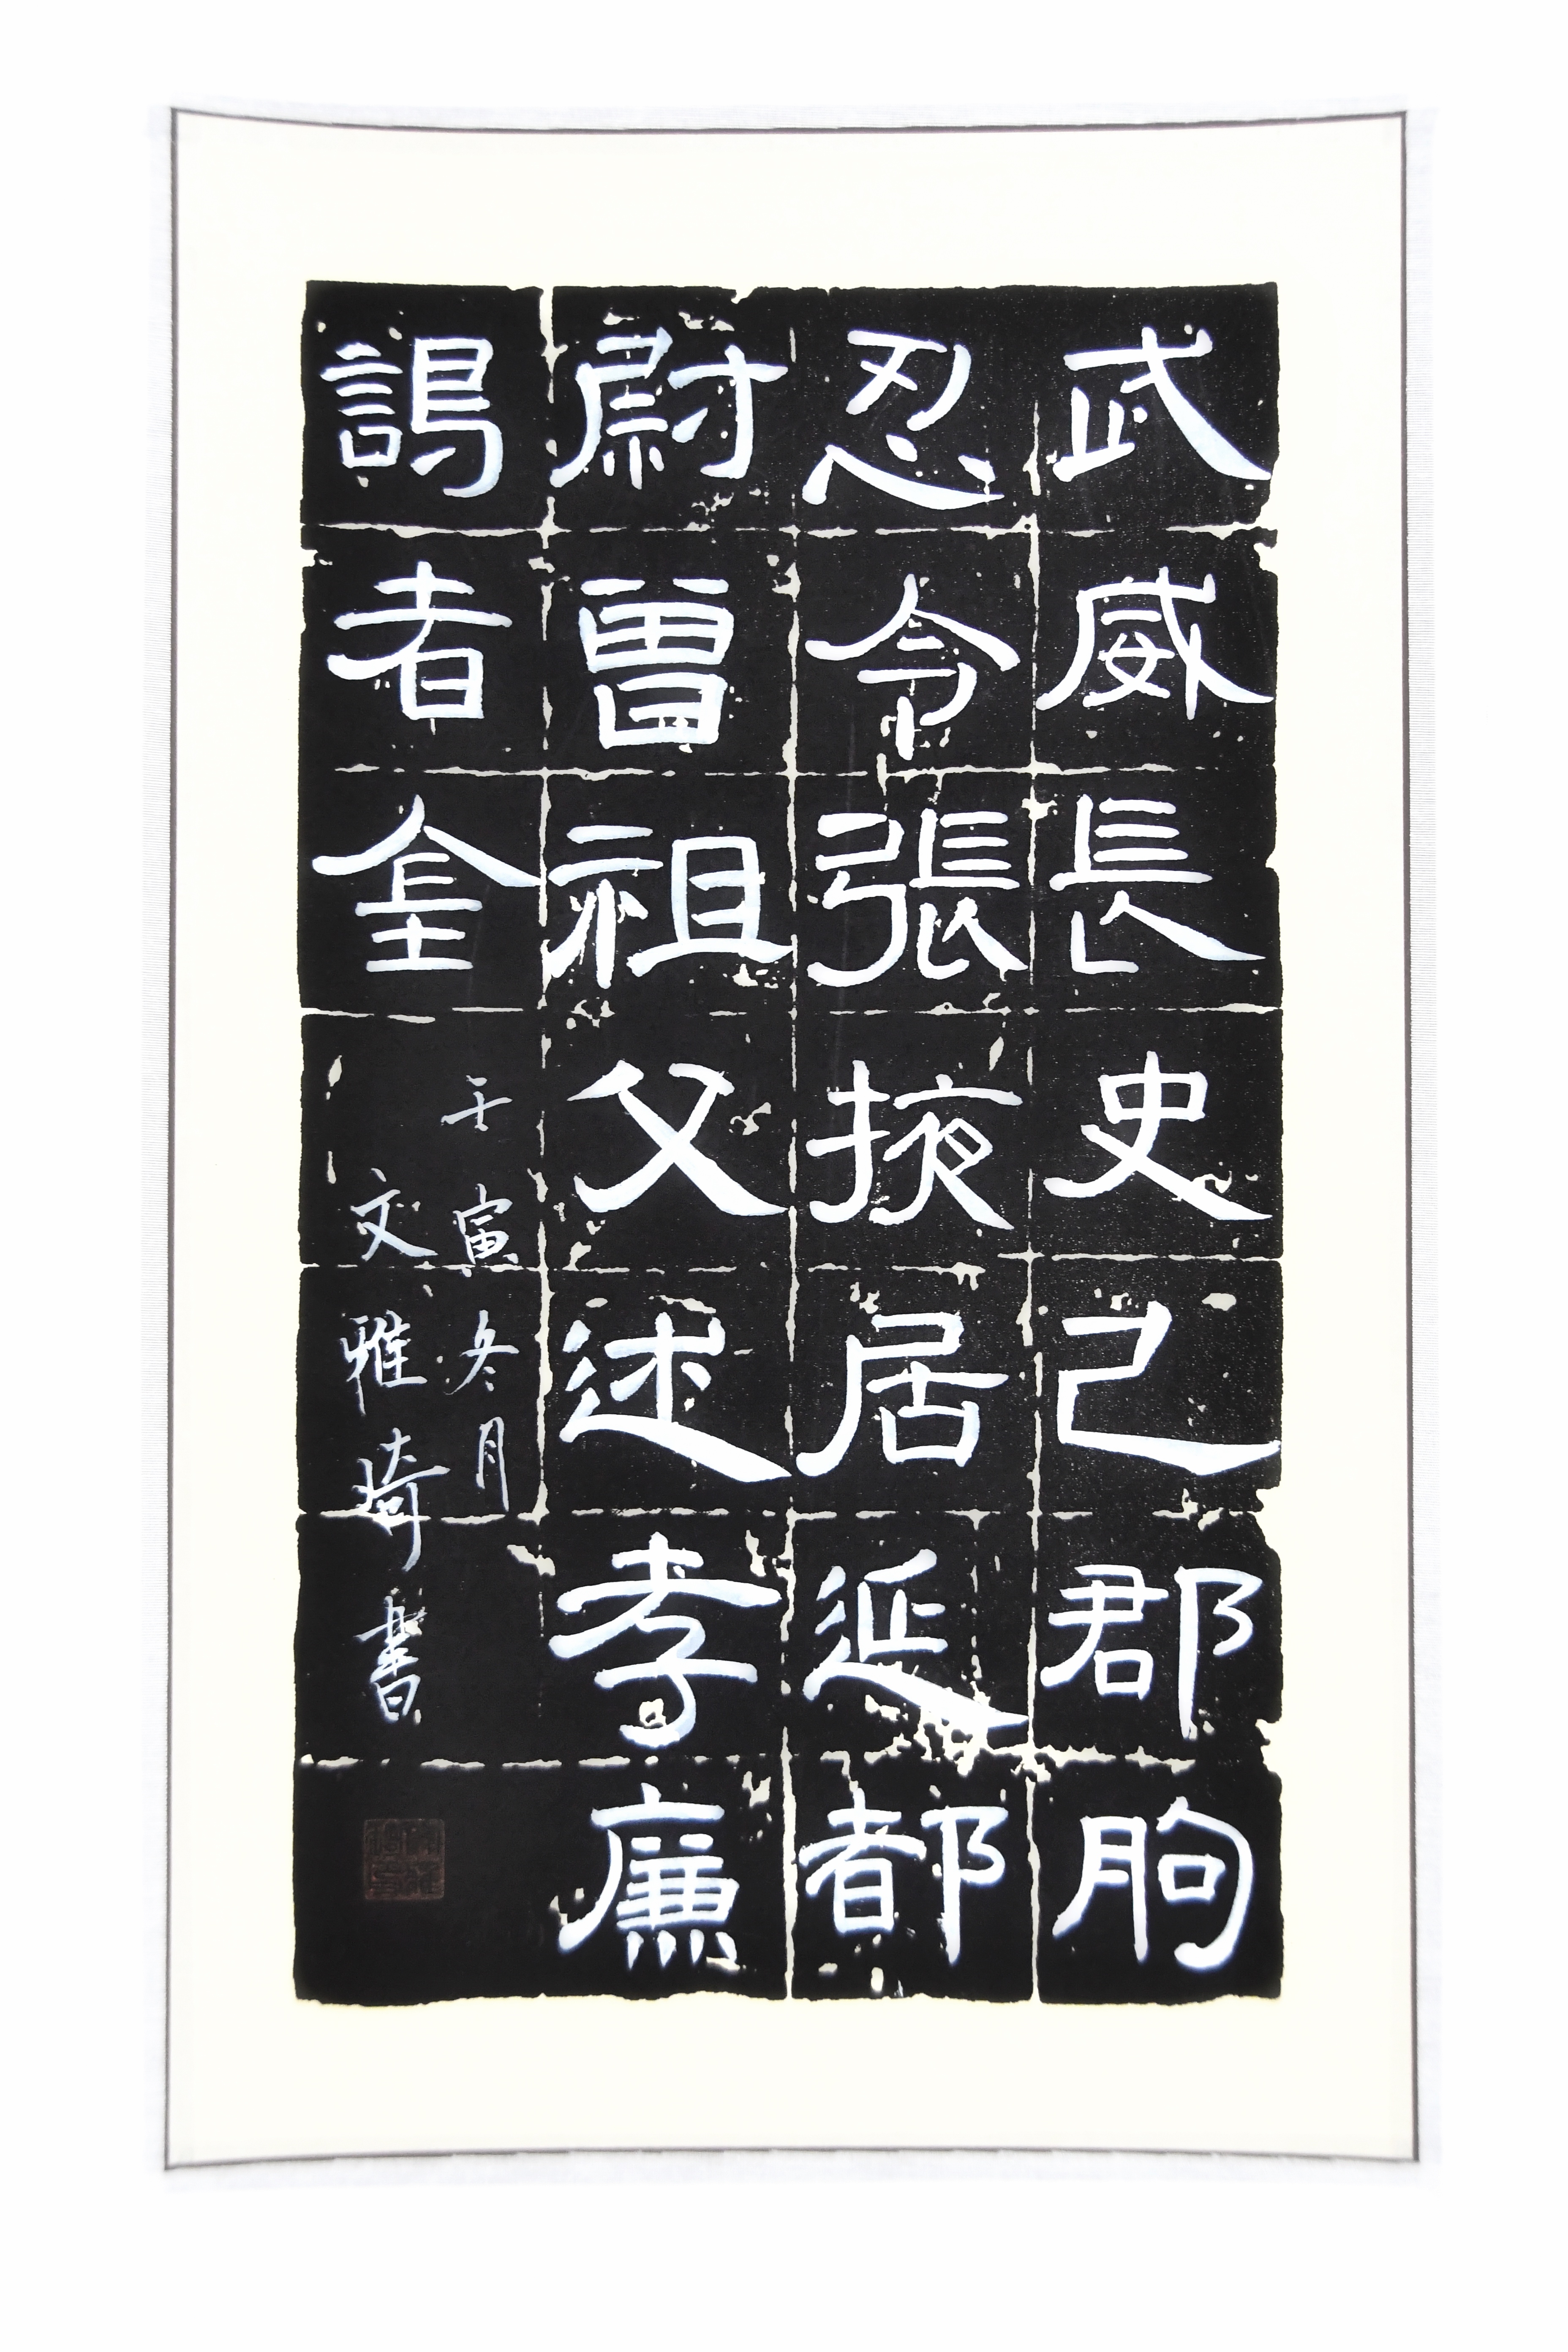 武威長史己郡朐
忍令張掖居延都
尉曾祖父述孝廉
謁者金
壬寅冬月
文雅琦書